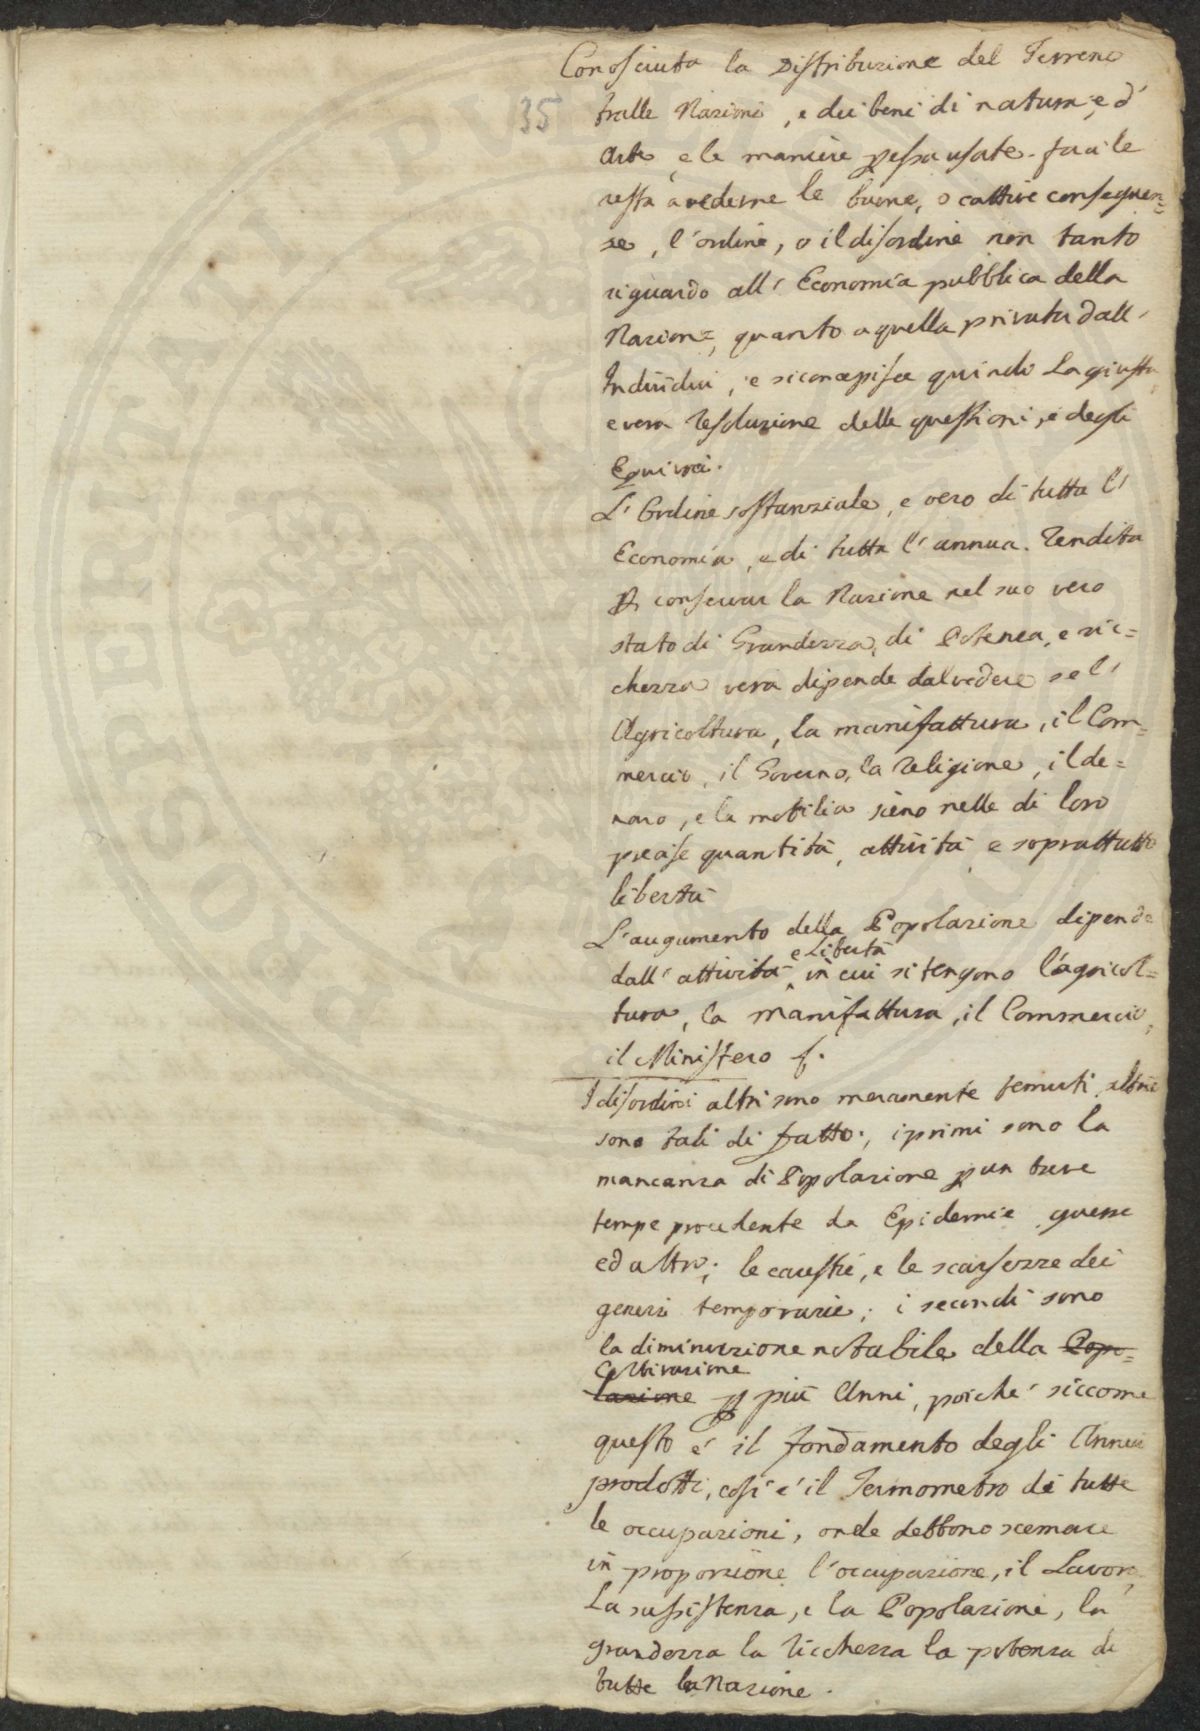 35
Conosciuta la Distribuzione del Terreno
tralle Nazioni, e dei beni di natura, e d'
Arte, e le maniere pessa usate. facile
resta a vederne le buone, o cattive conseguen=
ze, l'ordine, o il disordine non tanto
riguardo all' Economia pubblica della
Nazione, quanto a quella privata dall'
Individui, e si concepisce quindi La giusta,
e vera resoluzione delle questioni, e degli
Equivoci.
L' Ordine sostanziale, e vero di tutta l'
Economia, e di tutta l' annua. rendita
p conservar la Nazione nel suo vero
stato di Grandezza, di Potenza, e ric=
chezza vera dipende dal vedere se l'
Agricoltura, la manifattura, il Com=
mercio, il Governo, la religione, il de=
naro, e la mobilia sieno nelle di loro
precise quantità, attività e soprattutto
libertà
L'augumento della Popolazione dipende
dall' attività e Libertà in cui si tengono l'agricol=
tura, la manifattura, il Commercio,
il Ministero
I disordini altri sono meramente temuti, altri
sono tali di fatto; i primi sono la
mancanza di Popolazione p un breve
tempo procedente da Epidemie guerre
ed altro; le carestie, e le scarsezze dei
generi temporarie; i secondi sono
la diminuzione notabile della Popo=
lazione Coltivazione p più Anni, poiche' siccome
questo e' il fondamento degli Annui
prodotti, cosi e' il Termometro di tutte
le occupazioni, onde debbono scemare
in proporzione l'occupazione, il Lavoro,
La sussistenza, e la Popolazione, la
grandezza la ricchezza la potenza di
tutte la Nazione.